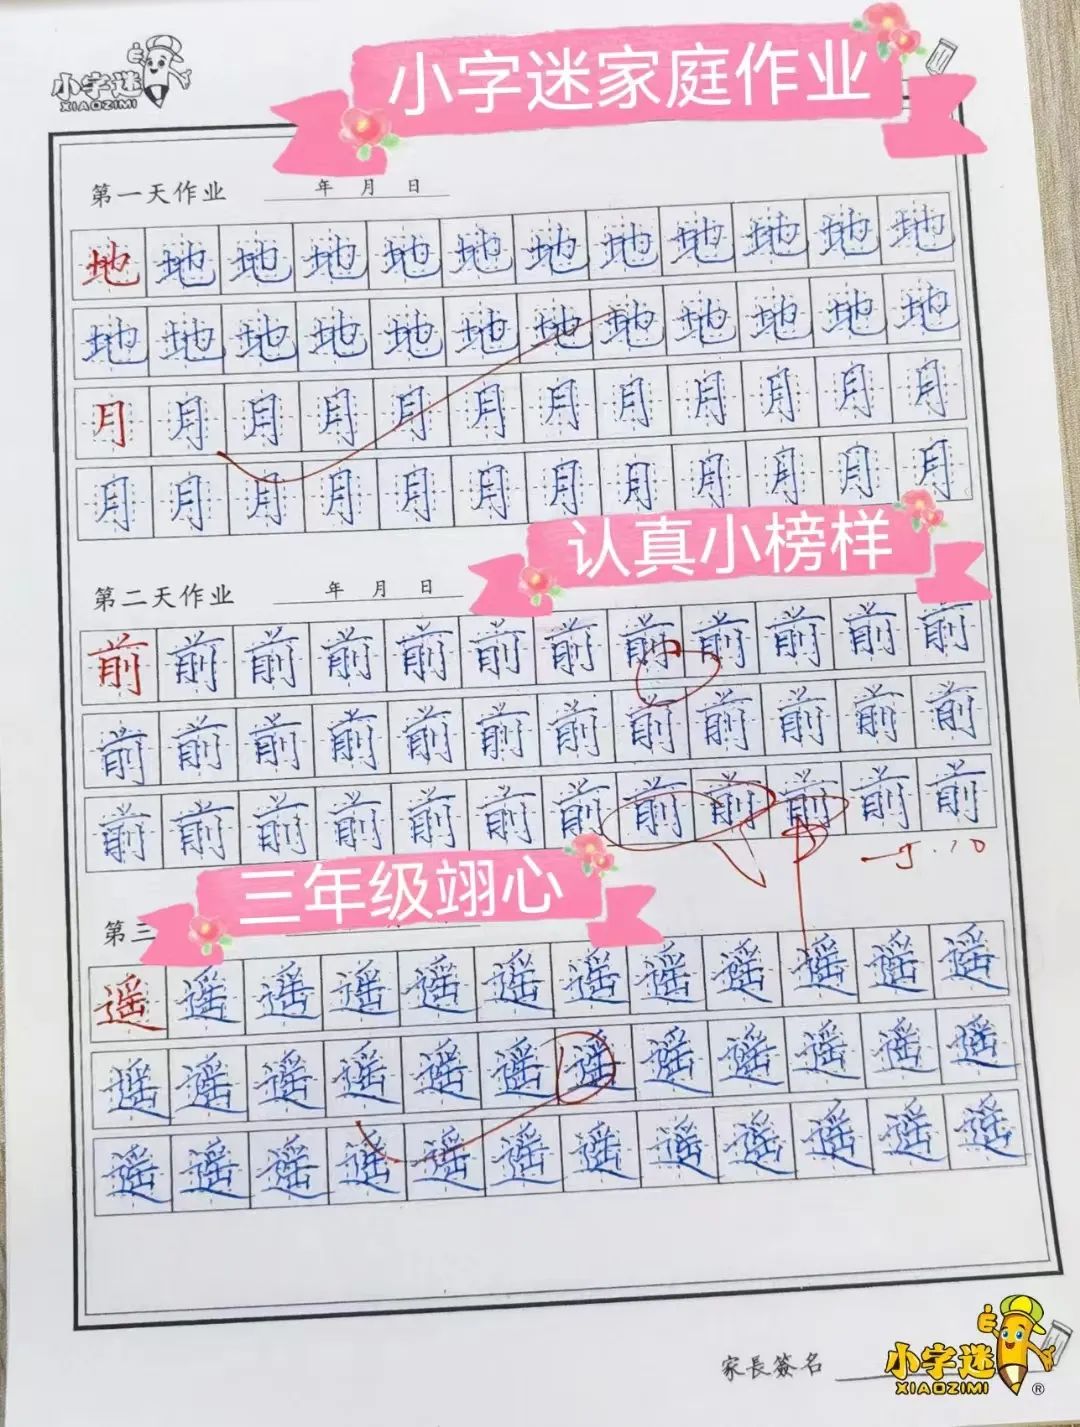 小字迷
XIAOZIMI
小字迷家庭作业
第一天作业 年 月 日
地地地地地地地地地地地地
地地地地地地地地地地地地
月月月月月月月月月月月月
月月月月月月月月月月月月
认真小榜样
第二天作业 年 月 日
前前前前前前前前前前前前
前前前前前前前前前前前前
前前前前前前前前前前前前
三年级翊心
第三
遥遥遥遥遥遥遥遥遥遥遥遥
遥遥遥遥遥遥遥遥遥遥遥遥
遥遥遥遥遥遥遥遥遥遥遥遥
家長簽名
小字迷
XIAOZIMI®